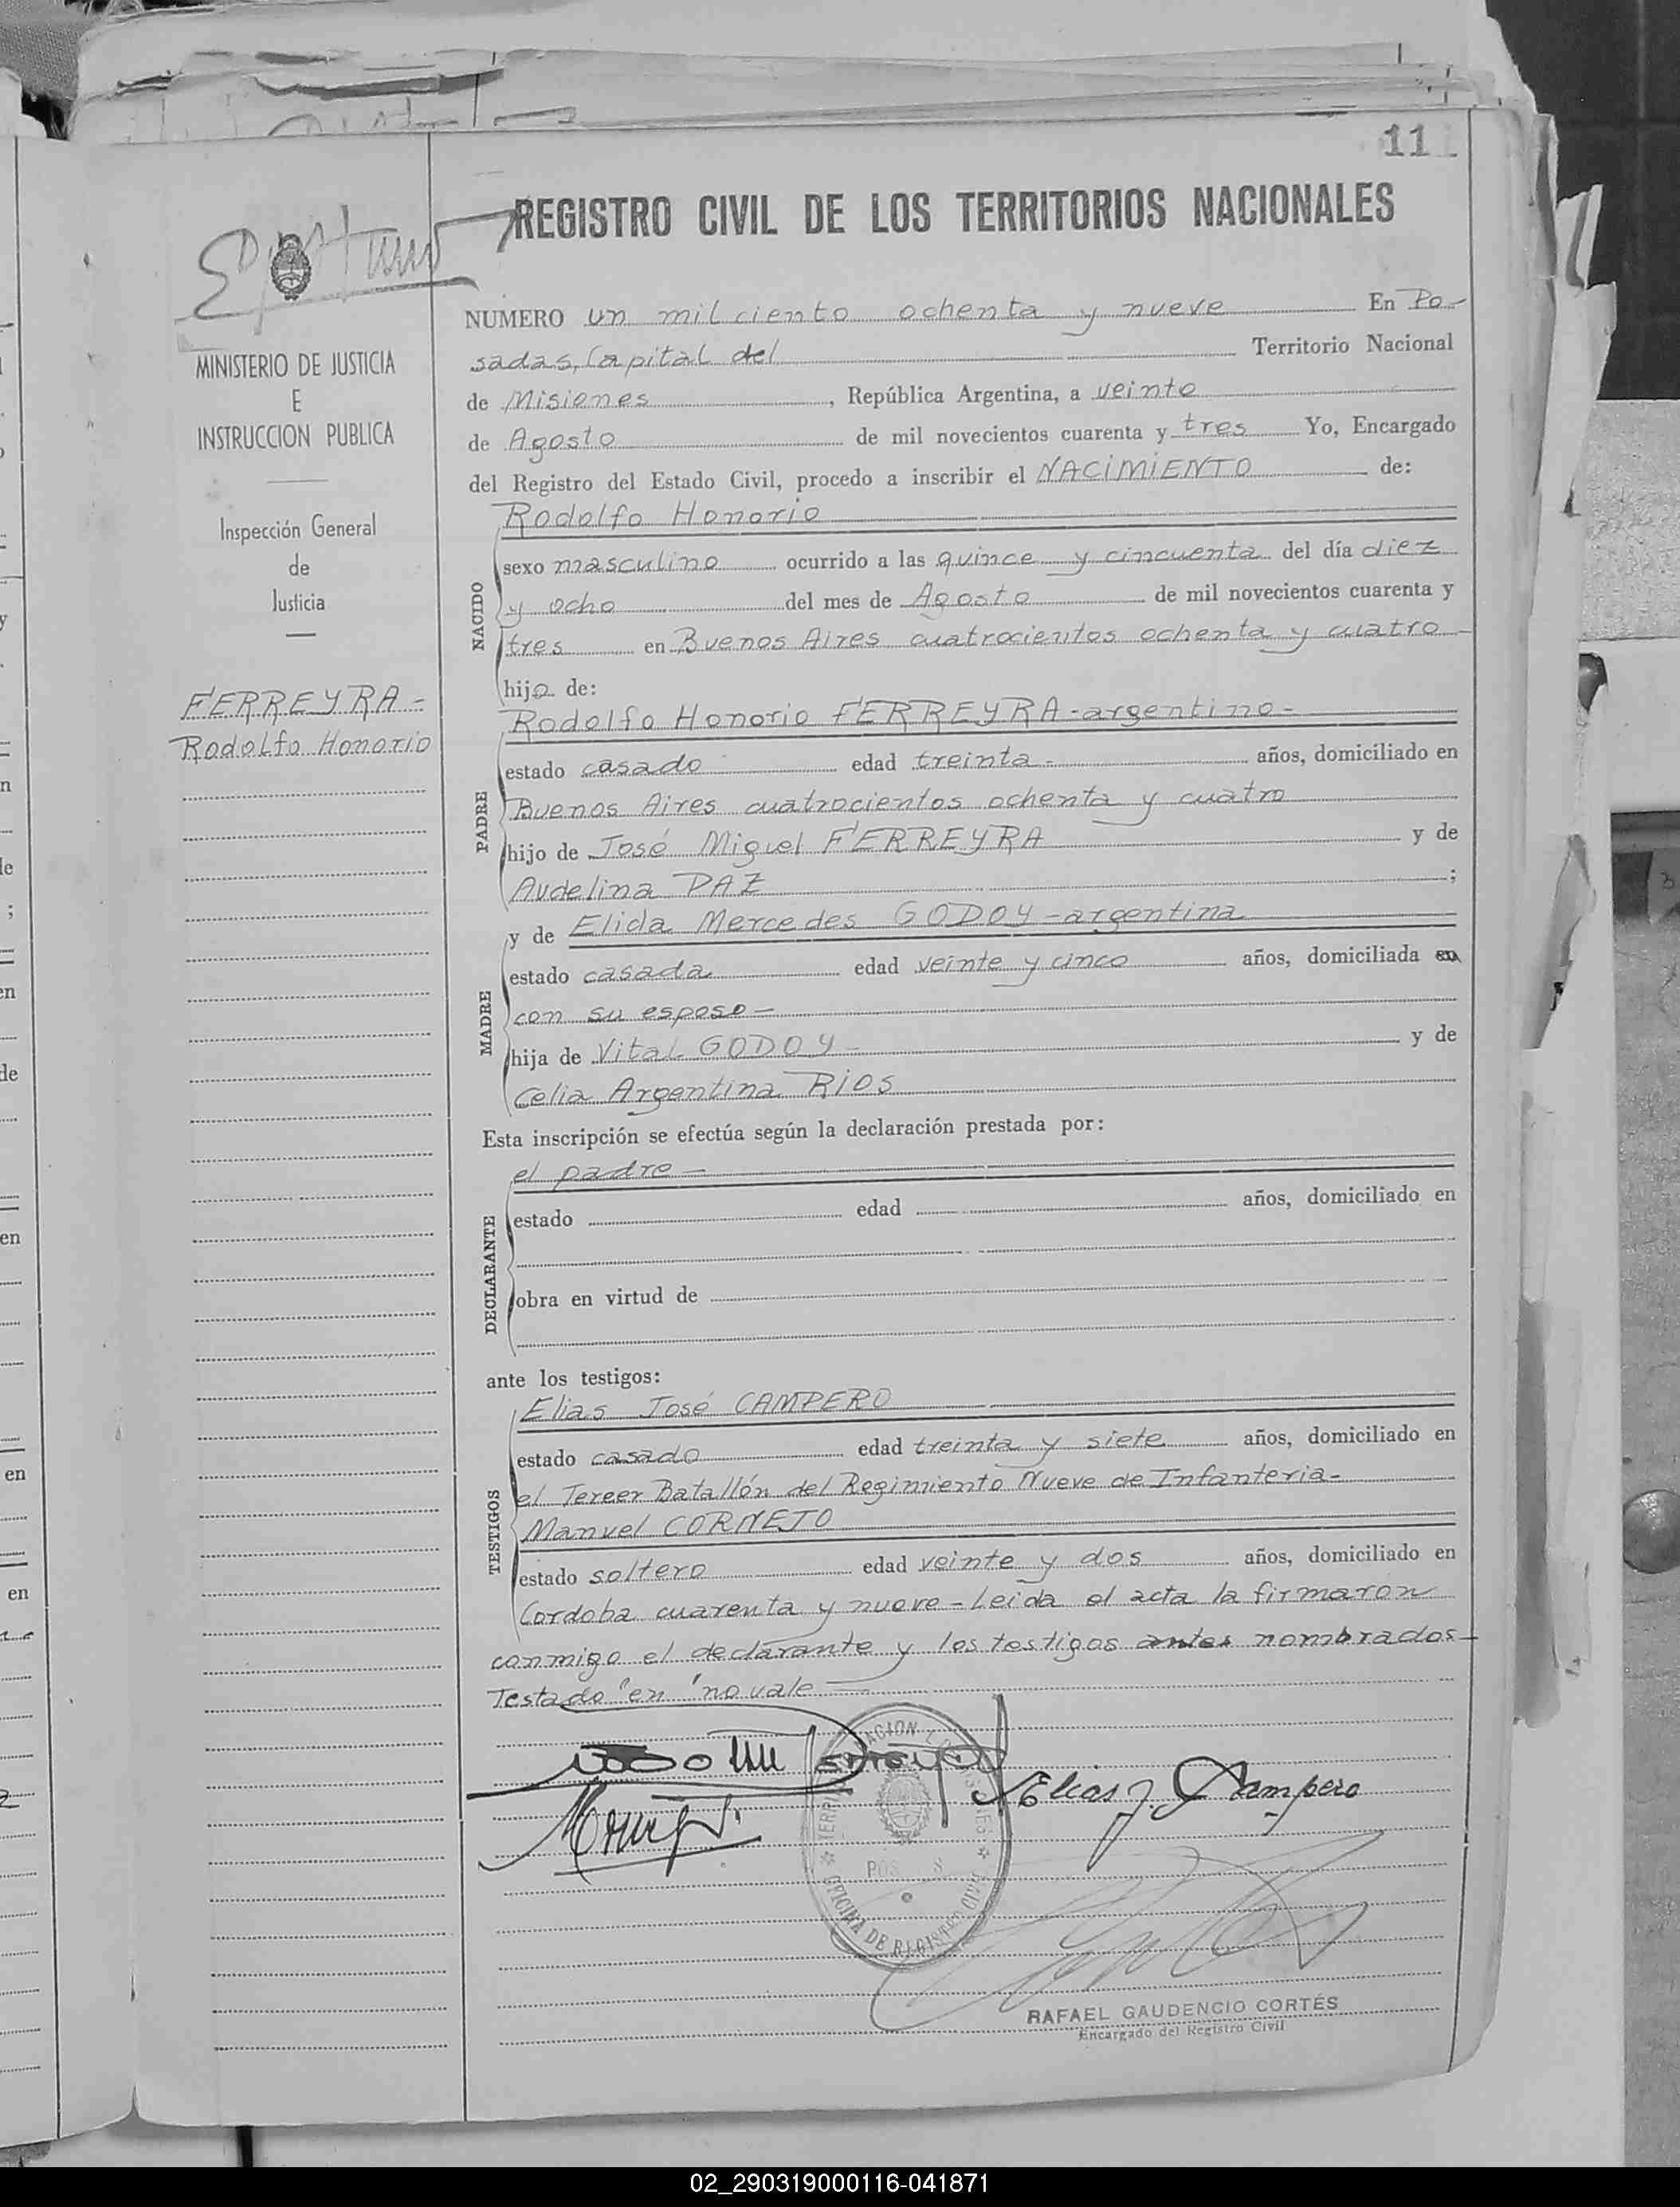 11
REGISTRO CIVIL DE LOS TERRITORIOS NACIONALES
MINISTERIO DE JUSTICIA
E
INSTRUCCION PUBLICA
Inspección General
de
Justicia
FERREYRA -
Rodolfo Honorio
NUMERO un mil ciento ochenta y nueve En Po-
sadas, Capital del Territorio Nacional
de Misiones, República Argentina, a veinte
de Agosto de mil novecientos cuarenta y tres Yo, Encargado
del Registro del Estado Civil, procedo a inscribir el NACIMIENTO de:
NACIDO
Rodolfo Honorio
sexo masculino ocurrido a las quince y cincuenta del día diez
y ocho del mes de Agosto de mil novecientos cuarenta y
tres en Buenos Aires cuatrocientos ochenta y cuatro
hijo de:
PADRE
Rodolfo Honorio FERREYRA - argentino -
estado casado edad treinta - años, domiciliado en
Buenos Aires cuatrocientos ochenta y cuatro
hijo de José Miguel FERREYRA y de
Audelina PAZ ;
MADRE
y de Elida Mercedes GODOY - argentina
estado casada edad veinte y cinco años, domiciliada en
con su esposo -
hija de Vital GODOY - y de
Celia Argentina RIOS
Esta inscripción se efectúa según la declaración prestada por:
DECLARANTE
el padre -
estado edad años, domiciliado en
obra en virtud de
ante los testigos:
TESTIGOS
Elias José CAMPERO
estado casado edad treinta y siete años, domiciliado en
el Tercer Batallón del Regimiento Nueve de Infanteria -
Manuel CORNEJO
estado soltero edad veinte y dos años, domiciliado en
Cordoba cuarenta y nueve - Leida el acta la firmaron
conmigo el declarante y los testigos antes nombrados -
Testado "en" no vale
Elias J. Campero
OFICINA DE REGISTRO CIVIL
RAFAEL GAUDENCIO CORTÉS
Encargado del Registro Civil
02_290319000116-041871